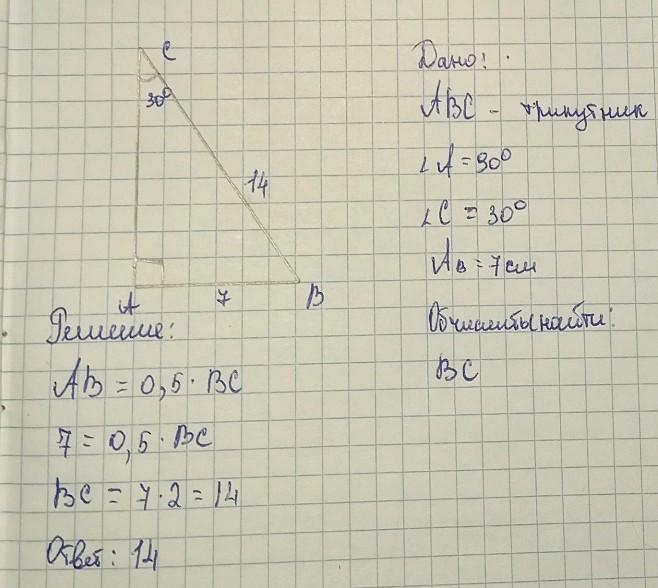 C
30°
14
A
7
B
Дано:
ABC - трикутник
∠A = 90°
∠C = 30°
AB = 7 см
найти:
BC
Решение:
AB = 0,5 · BC
7 = 0,5 · BC
BC = 7 · 2 = 14
Ответ: 14